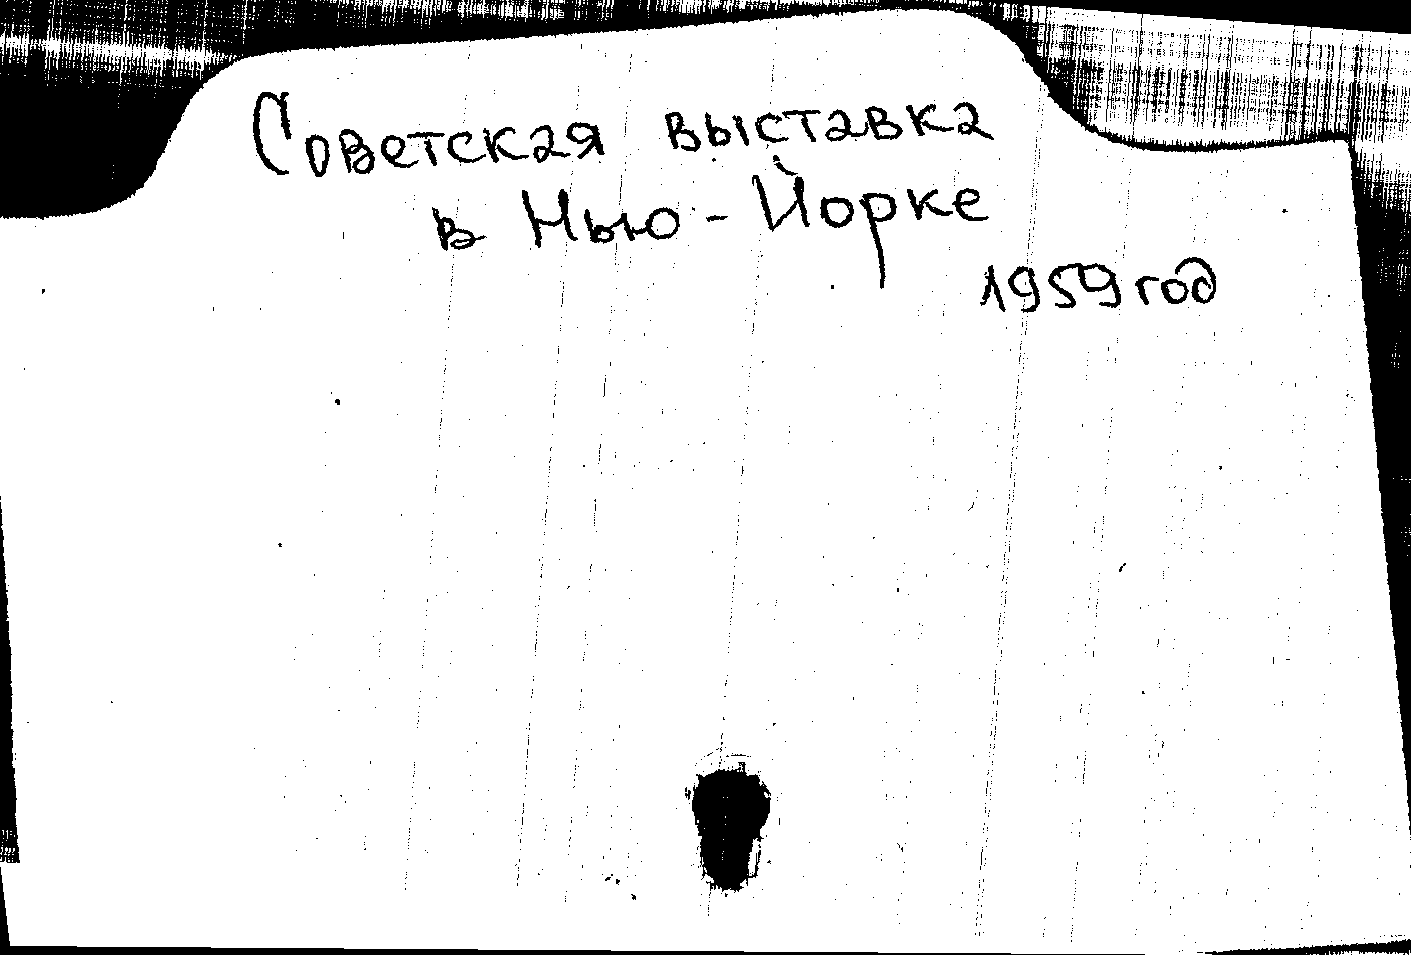 Советская выставка
в Нью-Йорке
1959 год